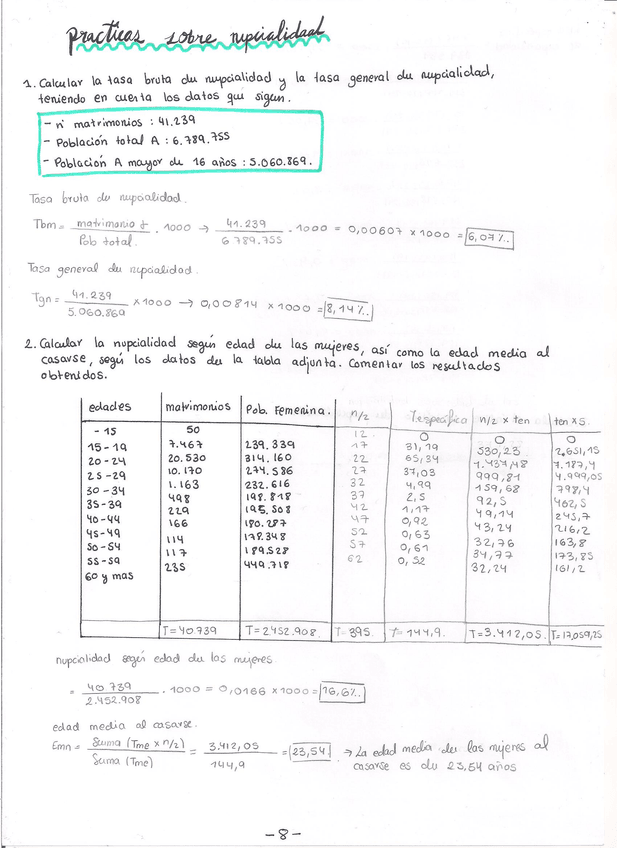 Practicas sobre nupcialidad
1. Calcular la tasa bruta du nupcialidad y la tasa general du nupcialidad,
teniendo en cuenta los datos qui sigun.
- nº matrimonios : 41.239
- Población total A : 6.789.755
- Población A mayor de 16 años : 5.060.869.
Tasa bruta du nupcialidad.
Tbm = matrimonio t / Pob total. . 1000 → 41.239 / 6 789.755 . 1000 = 0,00607 x 1000 = 6,07 ‰.
Tasa general du nupcialidad.
Tgn = 41.239 / 5.060.869 x 1000 → 0,00814 x 1000 = 8,14 ‰.
2. Calcular la nupcialidad según edad du las mujeres, así como la edad media al
casarse, según los datos du la tabla adjunta. Comentar los resultados
obtenidos.
edades matrimonios Pob. Femenina. n/2 T.específico n/2 x ten ten x 5.
- 15 50 12 0 0 0
15 - 19 7.467 239.339 17 31,19 530,23 2,651,15
20 - 24 20.530 314.160 22 65,34 1.437,48 7.187,4
25 - 29 10.170 274.586 27 37,03 999,81 4.999,05
30 - 34 1.163 232.616 32 4,99 159,68 798,4
35 - 39 498 198.818 37 2,5 92,5 462,5
40 - 44 229 195.508 42 1,17 49,14 245,7
45 - 49 166 180.287 47 0,92 43,24 216,2
50 - 54 114 178.348 52 0,63 32,76 163,8
55 - 59 117 189.528 57 0,61 34,77 173,85
60 y mas 235 449.718 62 0,52 32,24 161,2
T = 40.739 T = 2452.908. T = 395. t = 144,9. T = 3.412,05. T = 17,059,25
nupcialidad según edad du las mujeres.
= 40 739 / 2.452.908 . 1000 = 0,0166 x 1000 = 16,6‰.
edad media al casarse.
Emn = Suma (Tme x n/2) / Suma (Tme) = 3.412,05 / 144,9 = 23,54. → La edad media du las mujeres al
casarse es du 23,54 años
- 8 -